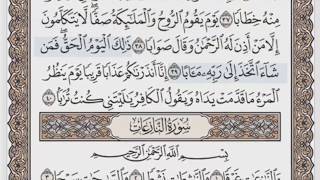 مِنْهُ خِطَابًا ٣٧ يَوْمَ يَقُومُ الرُّوحُ وَالْمَلَٰٓئِكَةُ صَفًّا ۖ لَّا يَتَكَلَّمُونَ
إِلَّا مَنْ أَذِنَ لَهُ الرَّحْمَٰنُ وَقَالَ صَوَابًا ٣٨ ذَٰلِكَ الْيَوْمُ الْحَقُّ ۖ فَمَن
شَآءَ اتَّخَذَ إِلَىٰ رَبِّهِۦ مَـَٔابًا ٣٩ إِنَّآ أَنذَرْنَٰكُمْ عَذَابًا قَرِيبًا يَوْمَ يَنظُرُ
الْمَرْءُ مَا قَدَّمَتْ يَدَاهُ وَيَقُولُ الْكَافِرُ يَٰلَيْتَنِى كُنتُ تُرَٰبًۢا ٤٠
سُورَةُ النَّازِعَاتِ
بِسْمِ اللَّهِ الرَّحْمَٰنِ الرَّحِيمِ